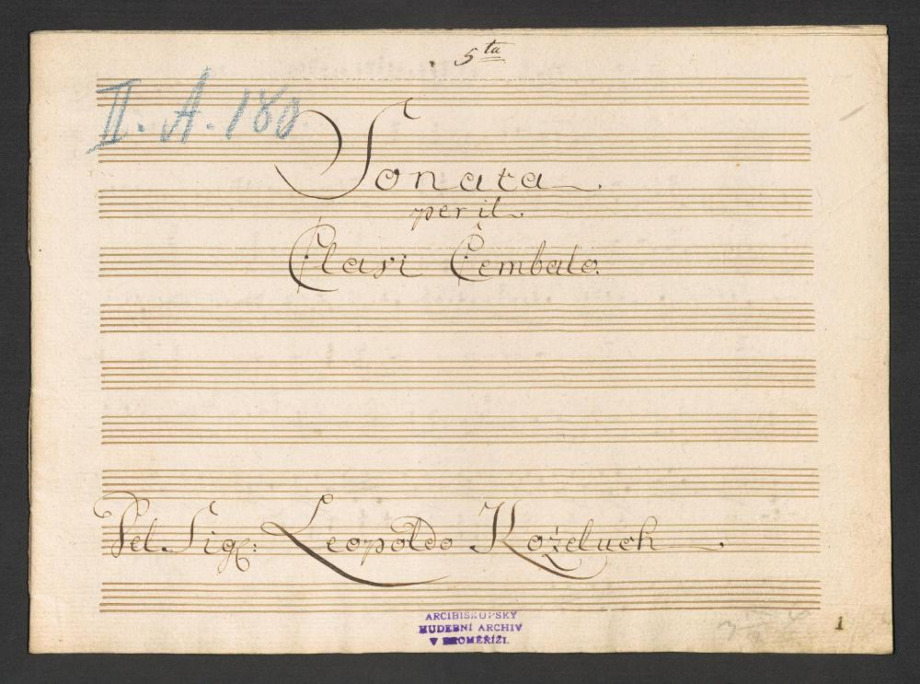 5ta
II. A. 180
Sonata.
per il.
Clavi Cembalo.
Del Sigr: Leopoldo Koželuch.
ARCIBISKUPSKÝ
HUDEBNÍ ARCHIV
V KROMĚŘÍŽI.
1